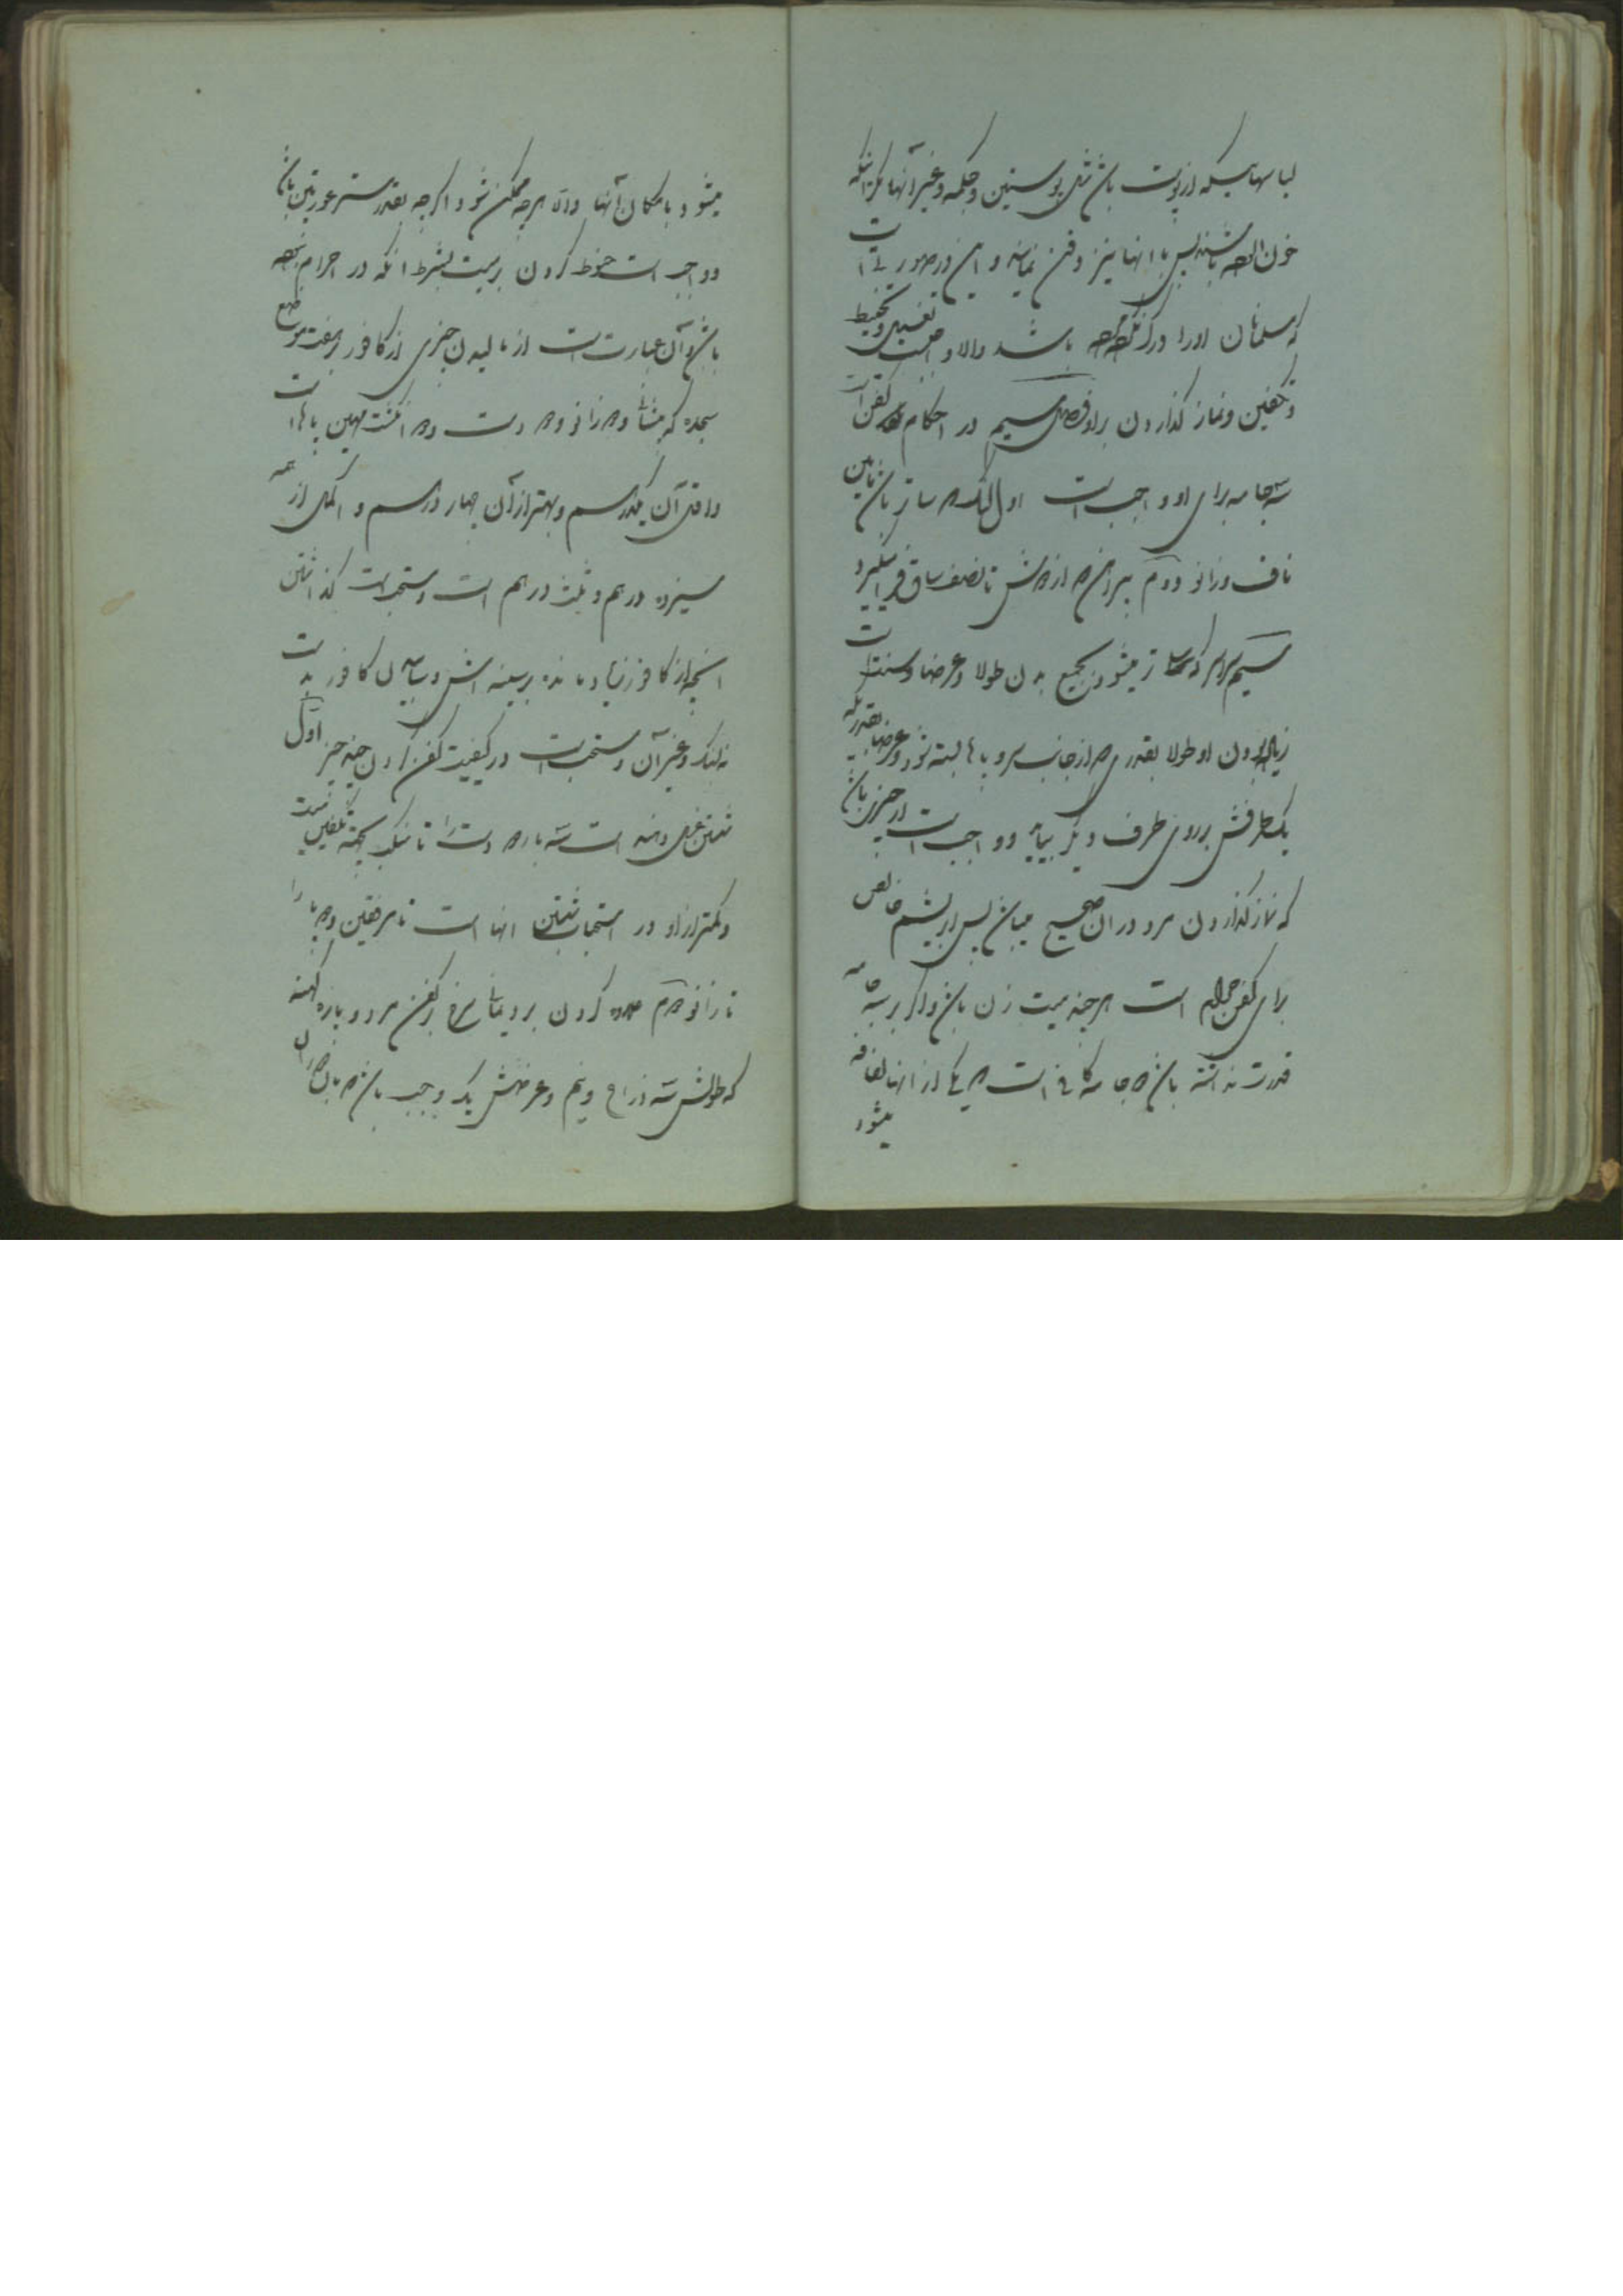 لباسهاییکه از پوست باشد مثل پوستین و چکمه و غیر آنها مگر آنکه
خون الوده باشند پس با انها نیز دفن نمایند و این در صورتی است
که مسلمانان او را درک نکرده باشند والا واجبست تغسیل و تحنیط
و تکفین و نماز گذاردن بر او فصل سیم در احکام کفن است
سه جامه برای او واجب است اول لنک که ساتر باشد مابین
ناف و زانو دوم پیراهن که از دوش تا نصف ساق فرا میگیرد
سیم سراسر که ساتر میشود بجمیع بدن طولا و عرضا و سنت است
زیاد بودن او طولا بقدری که از جانب سر و پاها بسته شود و عرضا بقدریکه
یک طرفش بر روی طرف دیگر بیاید و واجب است از چیزی باشد
که نماز گذاردن مرد در ان صحیح میباشد پس ابریشم خالص
برای کفن حرام است هر چند میت زن باشد و اگر بر سه جامه
قدرت نداشته باشد دو جامه کافی است که یکی از انها لفافه
میشود
میشود با امکان آنها والا هر چه ممکن شود اگر چه بقدر ستر عورتین باشد
و واجب است حنوط کردن بر میت بشرط انکه در احرام نبوده
باشد و آن عبارت است از مالیدن چیزی از کافور بر هفت موضع
سجده که پیشانی و دو زانو و دو دست و دو انگشت مهین پاها است
و اقل آن یکدرهم و بهتر از آن چهار درهم و اکمل از همه
سیزده درهم و ثلث درهم است و مستحب است گذاشتن
انچه از کافور زیاد مانده بر سینه اش و سائیدن کافور بدست
نه سنک و غیر آن و مستحب است در کیفیت کفن کردن چند چیز اول
شستن غسل دهنده است سه بار دو دست را تا منکب بجهة تکفین میت
و کمتر از او در استحباب شستن انها است تا مرفقین و دو پا را
تا زانو دوم علاوه کردن برد یمانی سرخ بر کفن مرد و پارچه
که طولش سه ذراع و نیم و عرضش یک وجب باشد که بان دو ران